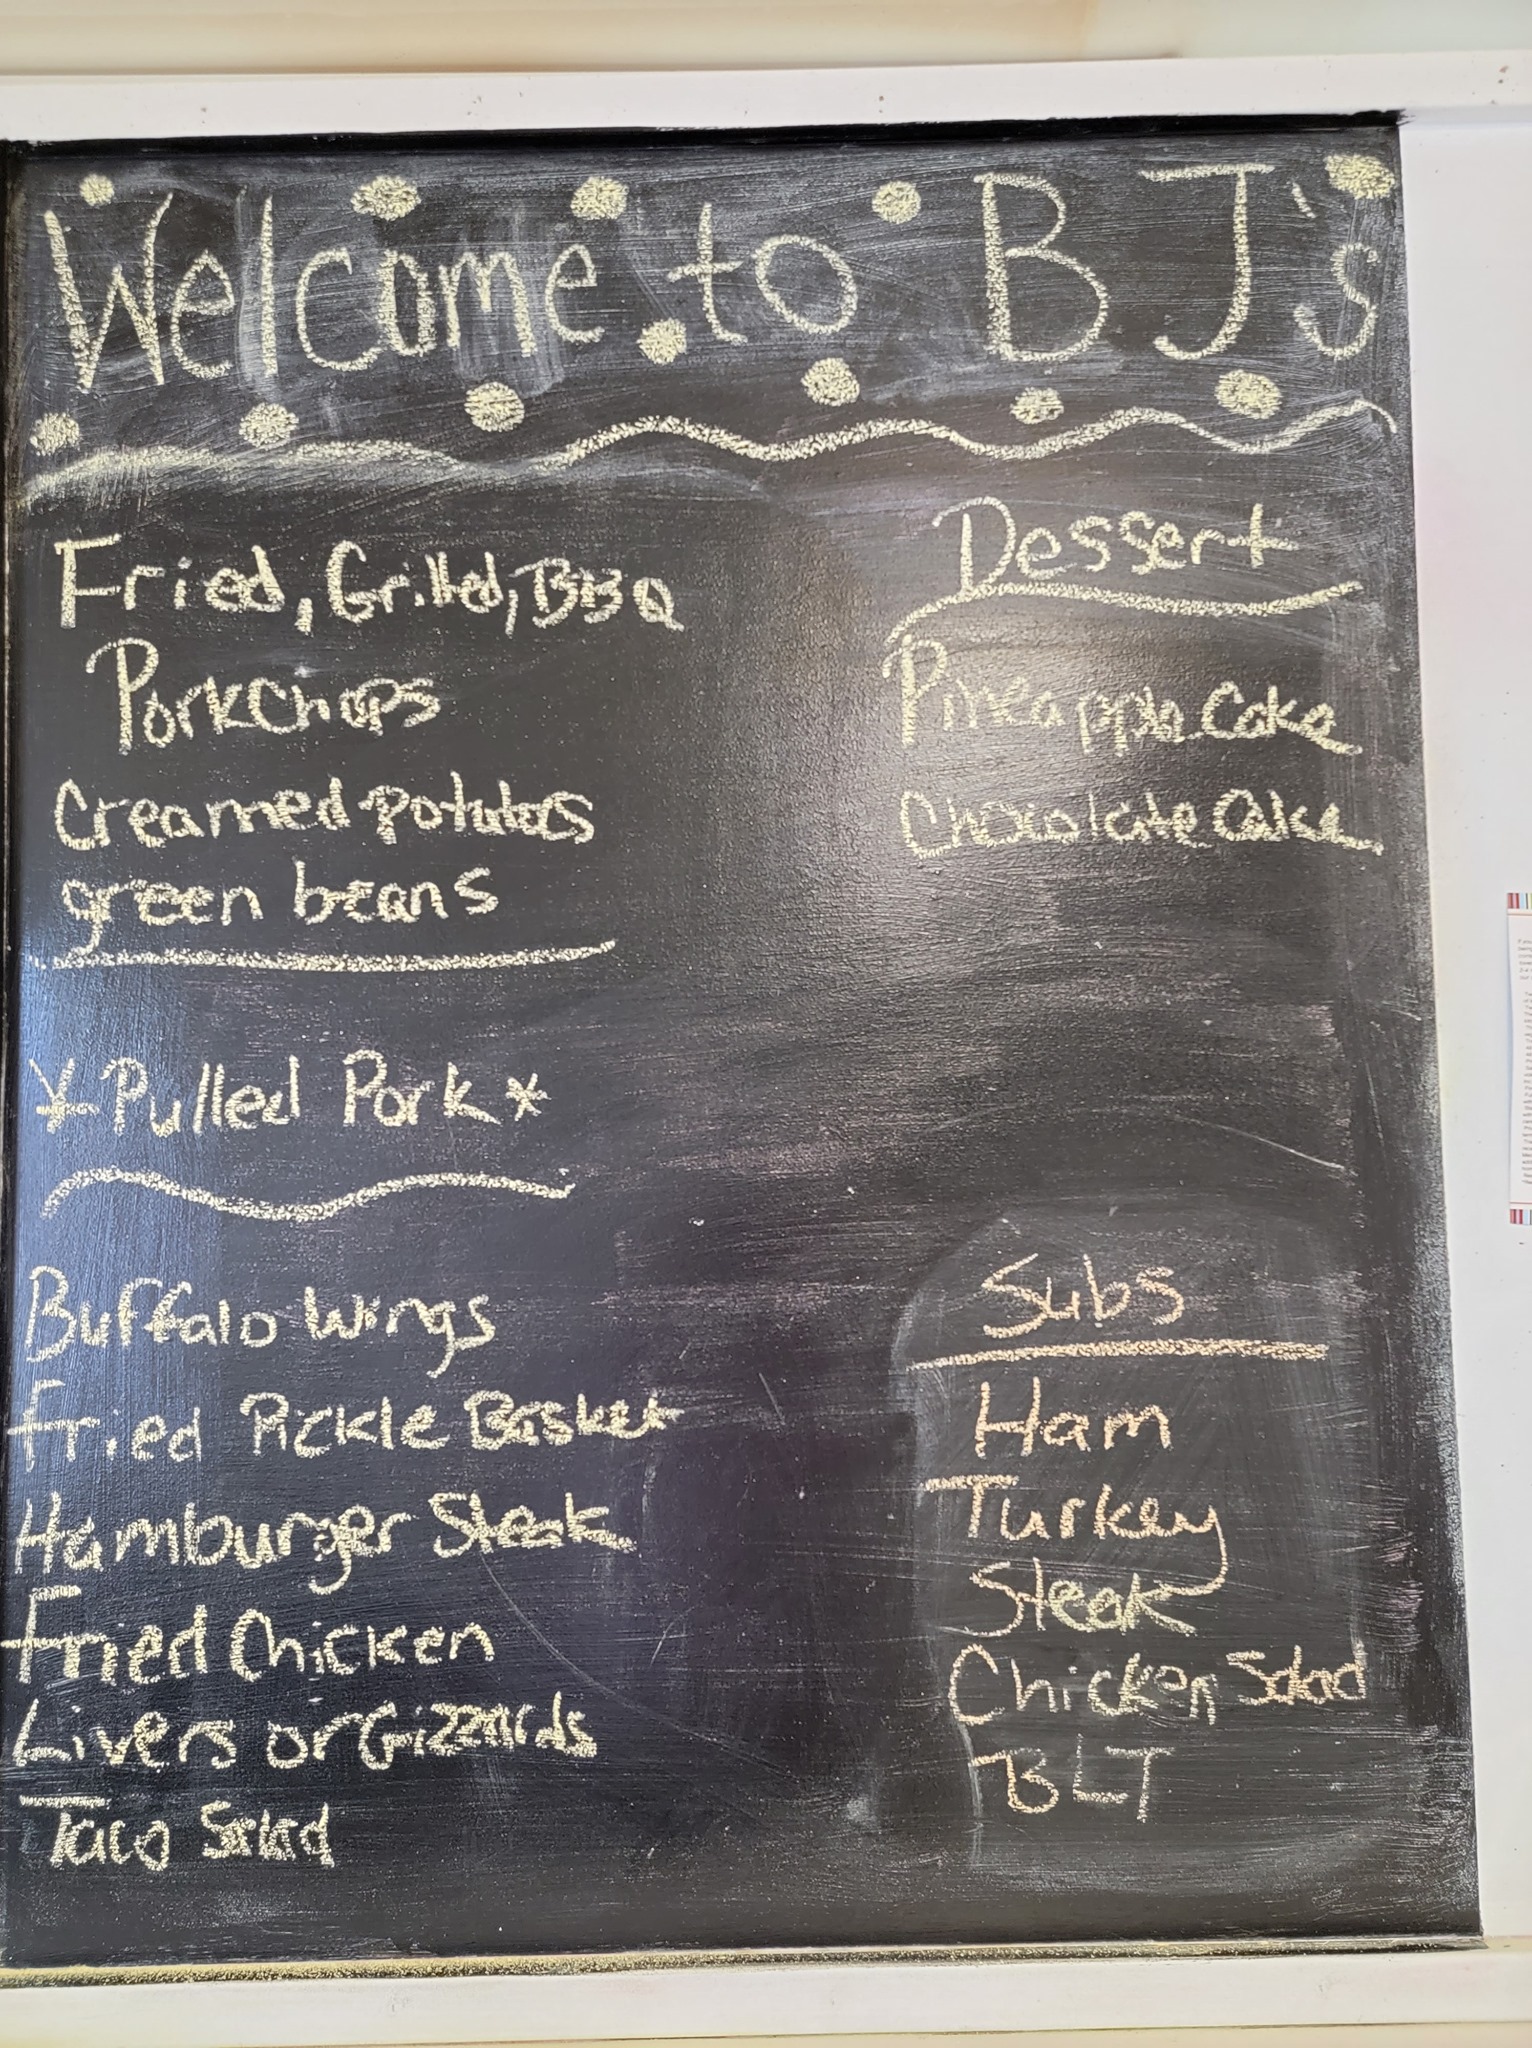 Welcome to BJ's
Fried, Grilled, BBQ
Porkchops
Creamed potatoes
green beans
*Pulled Pork*
Buffalo Wings
Fried Pickle Basket
Hamburger Steak
Fried Chicken
Livers or Gizzards
Taco Salad
Dessert
Pineapple Cake
Chocolate Cake
Subs
Ham
Turkey
Steak
Chicken Salad
BLT